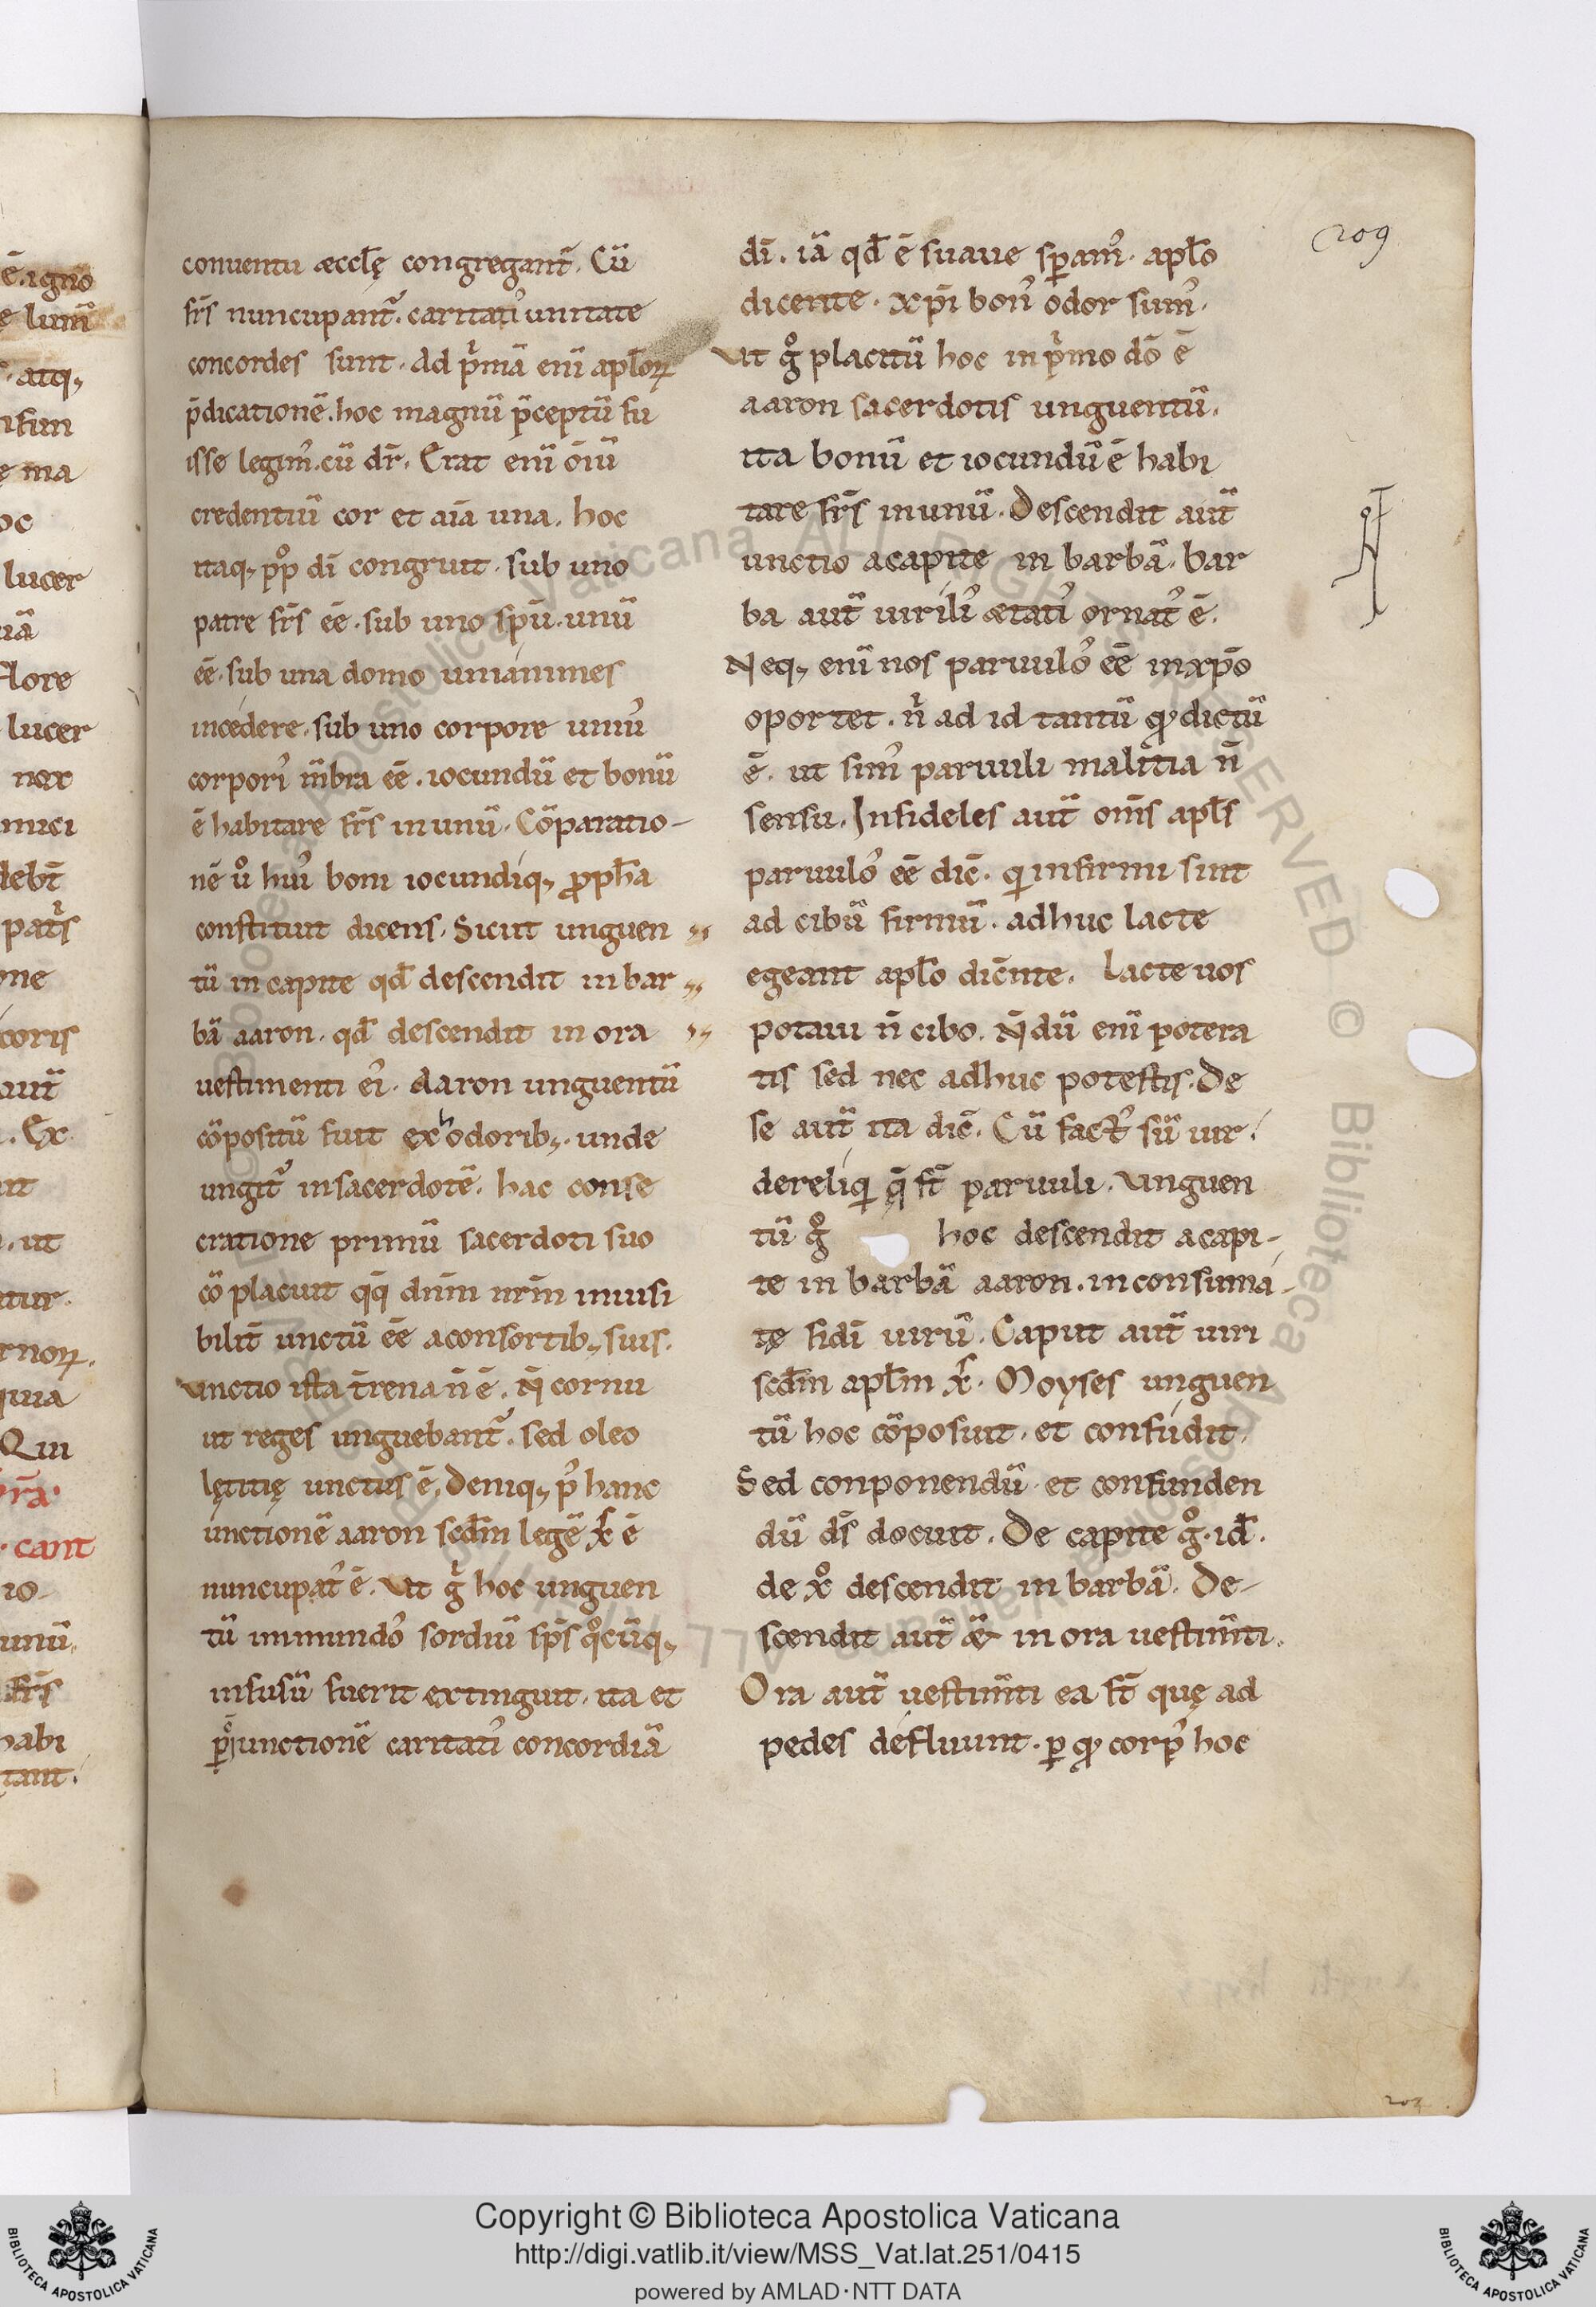 209
conuentu æccl̄ę congregant̄. Cū
frs̄ nuncupant᷑. caritati᾽ unitate
concordes sunt. Ad pͥmā enī apl̄oꝝ
p̄dicationē. hoc magnū p̄ceptū fu
isse legim᾽. cū dr̄. Erat enī om̄iū
credentiū cor et aīa una. hoc
itaq; pp̊ dī congruit. sub uno
patre frs̄ eē. sub uno spū. unū
eē. sub una domo unianimes
incedere. sub uno corpore uniu᾽
corpori᾽ m̄bra eē. iocundū et bonū
ē habitare frs̄ inunū. Cōparatio-
nē ů hui᾽ boni iocundiq; ꝓph̄a
constituit dicens. Sicut unguen
tū in capite qd̄ descendit in bar
bā aaron. qd̄ descendit in ora
uestimenti ei᾽. Aaron unguentū
cōpositū fuit exʰodorib;. unde
ungit᷑ insacerdotē. hac conse
cratione primū sacerdoti suo
cōplacuit qq̄ dn̄m nr̄m inuisi
bilit̄ unctū eē aconsortib; suis.
Unctio ista t̄rena n̄ ē. N̄ cornu
ut reges unguebant᷑. sed oleo
lętitię unctus ē. Deniq; p᾽ hanc
unctionē aaron scdm̄ legē x̄p̄s ē
nuncupat᾽ ē. Ut gͥ hoc unguen
tū immundo᾽ sordiū sps̄ qͦcūq;
infusū fuerit extinguit. ita et
ꝑ unctionē caritati᾽ concordiā
dī. iā qd̄ ē suaue spam᾽. apl̄o
dicente. xp̄i bon᾽ odor sum᾽.
Ut g̊ placitū hoc in pͥmo dō ē
aaron sacerdotis unguentū.
ita bonū et iocundū ē habi
tare frs̄ inunū. Descendit aut̄
unctio acapite in barbā. bar
ba aut̄ uirili᾽ ætati᾽ ornat᾽ ē.
Neq; enī nos paruulo᾽ eē inxpō
oportet. nͥ ad id tantū qđ dictū
ē. ut sim᾽ paruuli malitia n̄
sensu. Infideles aut̄ oms̄ apl̄s
paruulo᾽ eē dic̄. qͥ infirmi sint
ad cibū firmū. adhuc lacte
egeant apl̄o dic̄nte. Lacte uos
potaui n̄ cibo. N̄dū enī potera
tis sed nec adhuc potestis. De
se aut̄ ita dic̄. Cū fact᾽ sū uir.
dereliqͥ q̄ st̄ paruuli. Unguen
tū g̊ hoc descendit acapi-
te in barbā aaron. inconsuma-
tę fidī uirū. Caput aut̄ uiri
scdm̄ apl̄m x̄p̄s. Moyses unguen
tū hoc cōposuit. et confudit.
Sed conponendū et confunden
dū ds̄ docuit. De capite g̊. id̄.
de xͦ descendit in barbā. De-
scendit aut̄ &̄ in ora uestim̄ti.
Ora aut̄ uestim̄ti ea st̄ quę ad
pedes defluunt. ꝑ qđ corp᾽ hoc
Copyright © Biblioteca Apostolica Vaticana
http://digi.vatlib.it/view/MSS_Vat.lat.251/0415
powered by AMLAD·NTT DATA